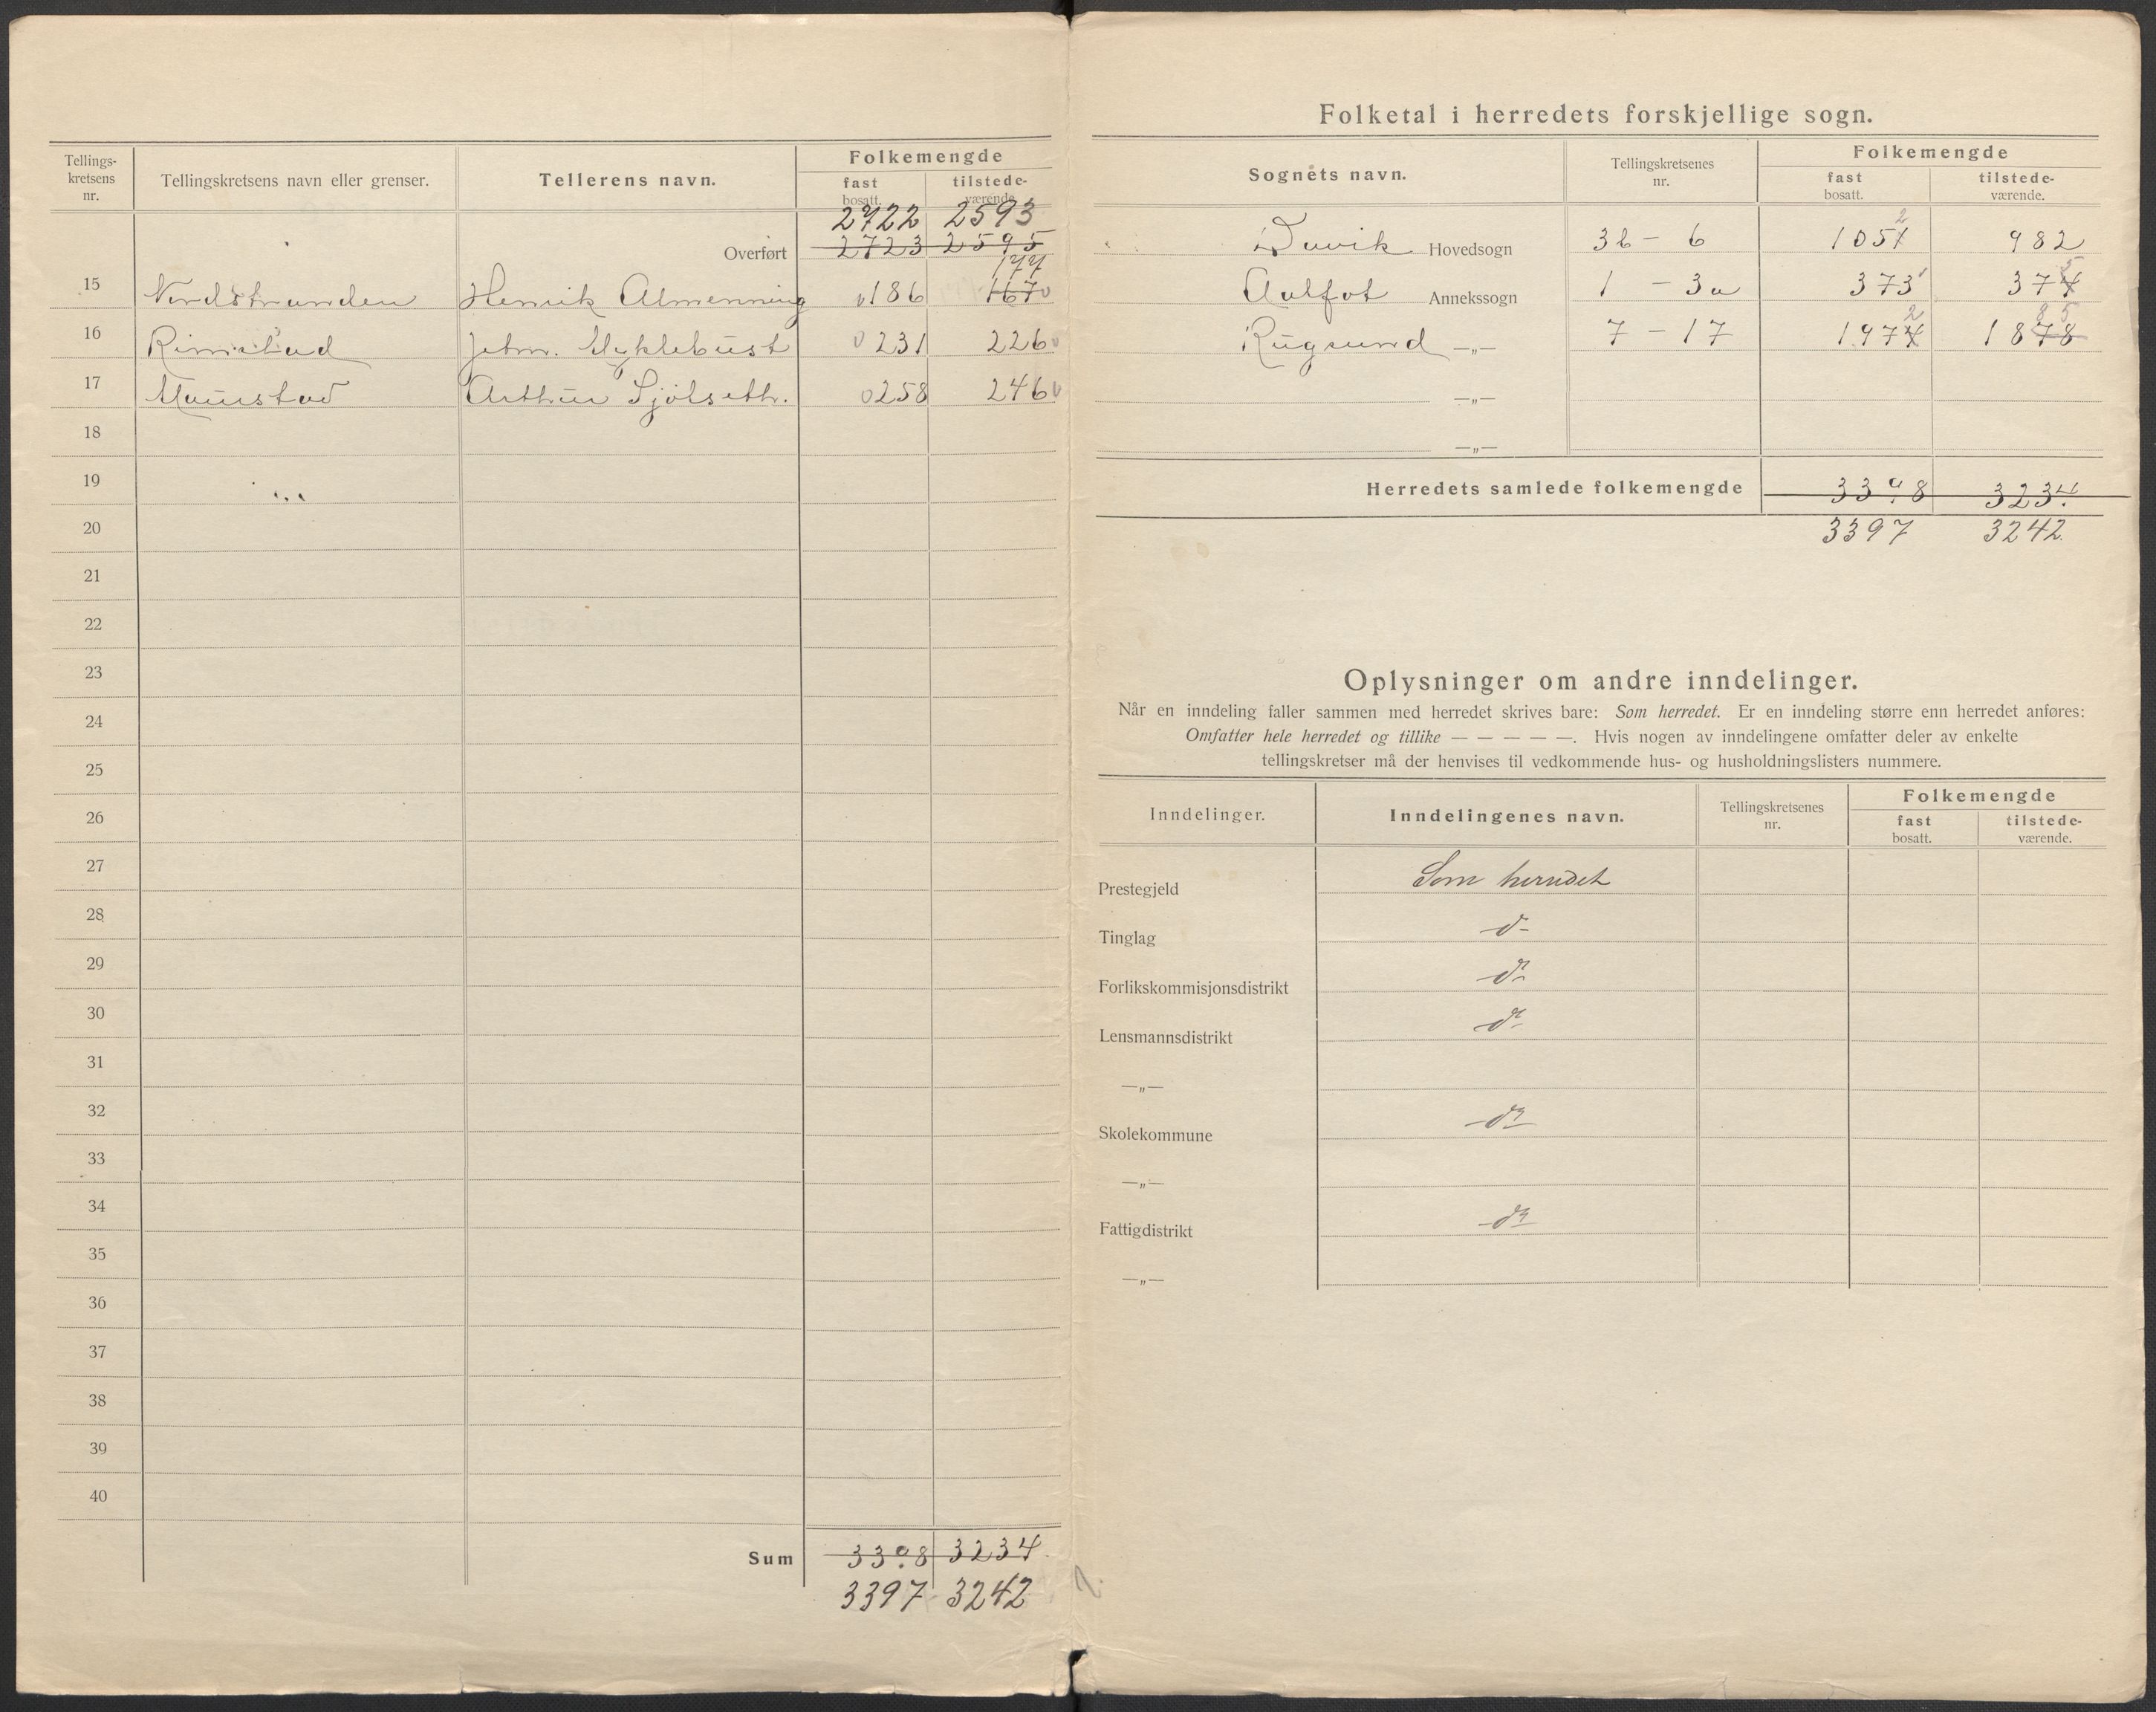 Tellings-
kretsens
nr.
Tellingskretsens navn eller grenser.
Tellerens navn.
Folkemengde
fast
bosatt.
tilstede-
værende.
2722 2593
Overført 2723 2595
177
15 Nordstranden Henrik Almenning 186 167
16 Rimstad John. Myklebust 231 226
17 Maurstad Arthur Sjölseth. 258 246
18
19
20
21
22
23
24
25
26
27
28
29
30
31
32
33
34
35
36
37
38
39
40
Sum 3398 3234
3397 3242
Folketal i herredets forskjellige sogn.
Sognets navn.
Tellingskretsenes
nr.
Folkemengde
fast
bosatt.
tilstede-
værende.
2
Davik Hovedsogn 3b - 6 1051 982
5
Aalfot Annekssogn 1 - 3a 373 374
2 8 5
Rugsund —„— 7 - 17 1974 1878
—„—
—„—
Herredets samlede folkemengde 3398 3234
3397 3242
Oplysninger om andre inndelinger.
Når en inndeling faller sammen med herredet skrives bare: Som herredet. Er en inndeling større enn herredet anføres:
Omfatter hele herredet og tillike — — — — —. Hvis nogen av inndelingene omfatter deler av enkelte
tellingskretser må der henvises til vedkommende hus- og husholdningslisters nummere.
Inndelinger.
Inndelingenes navn.
Tellingskretsenes
nr.
Folkemengde
fast
bosatt.
tilstede-
værende.
Prestegjeld Som herredet
Tinglag d-
Forlikskommisjonsdistrikt do
Lensmannsdistrikt do
—„—
Skolekommune do
—„—
Fattigdistrikt do
—„—